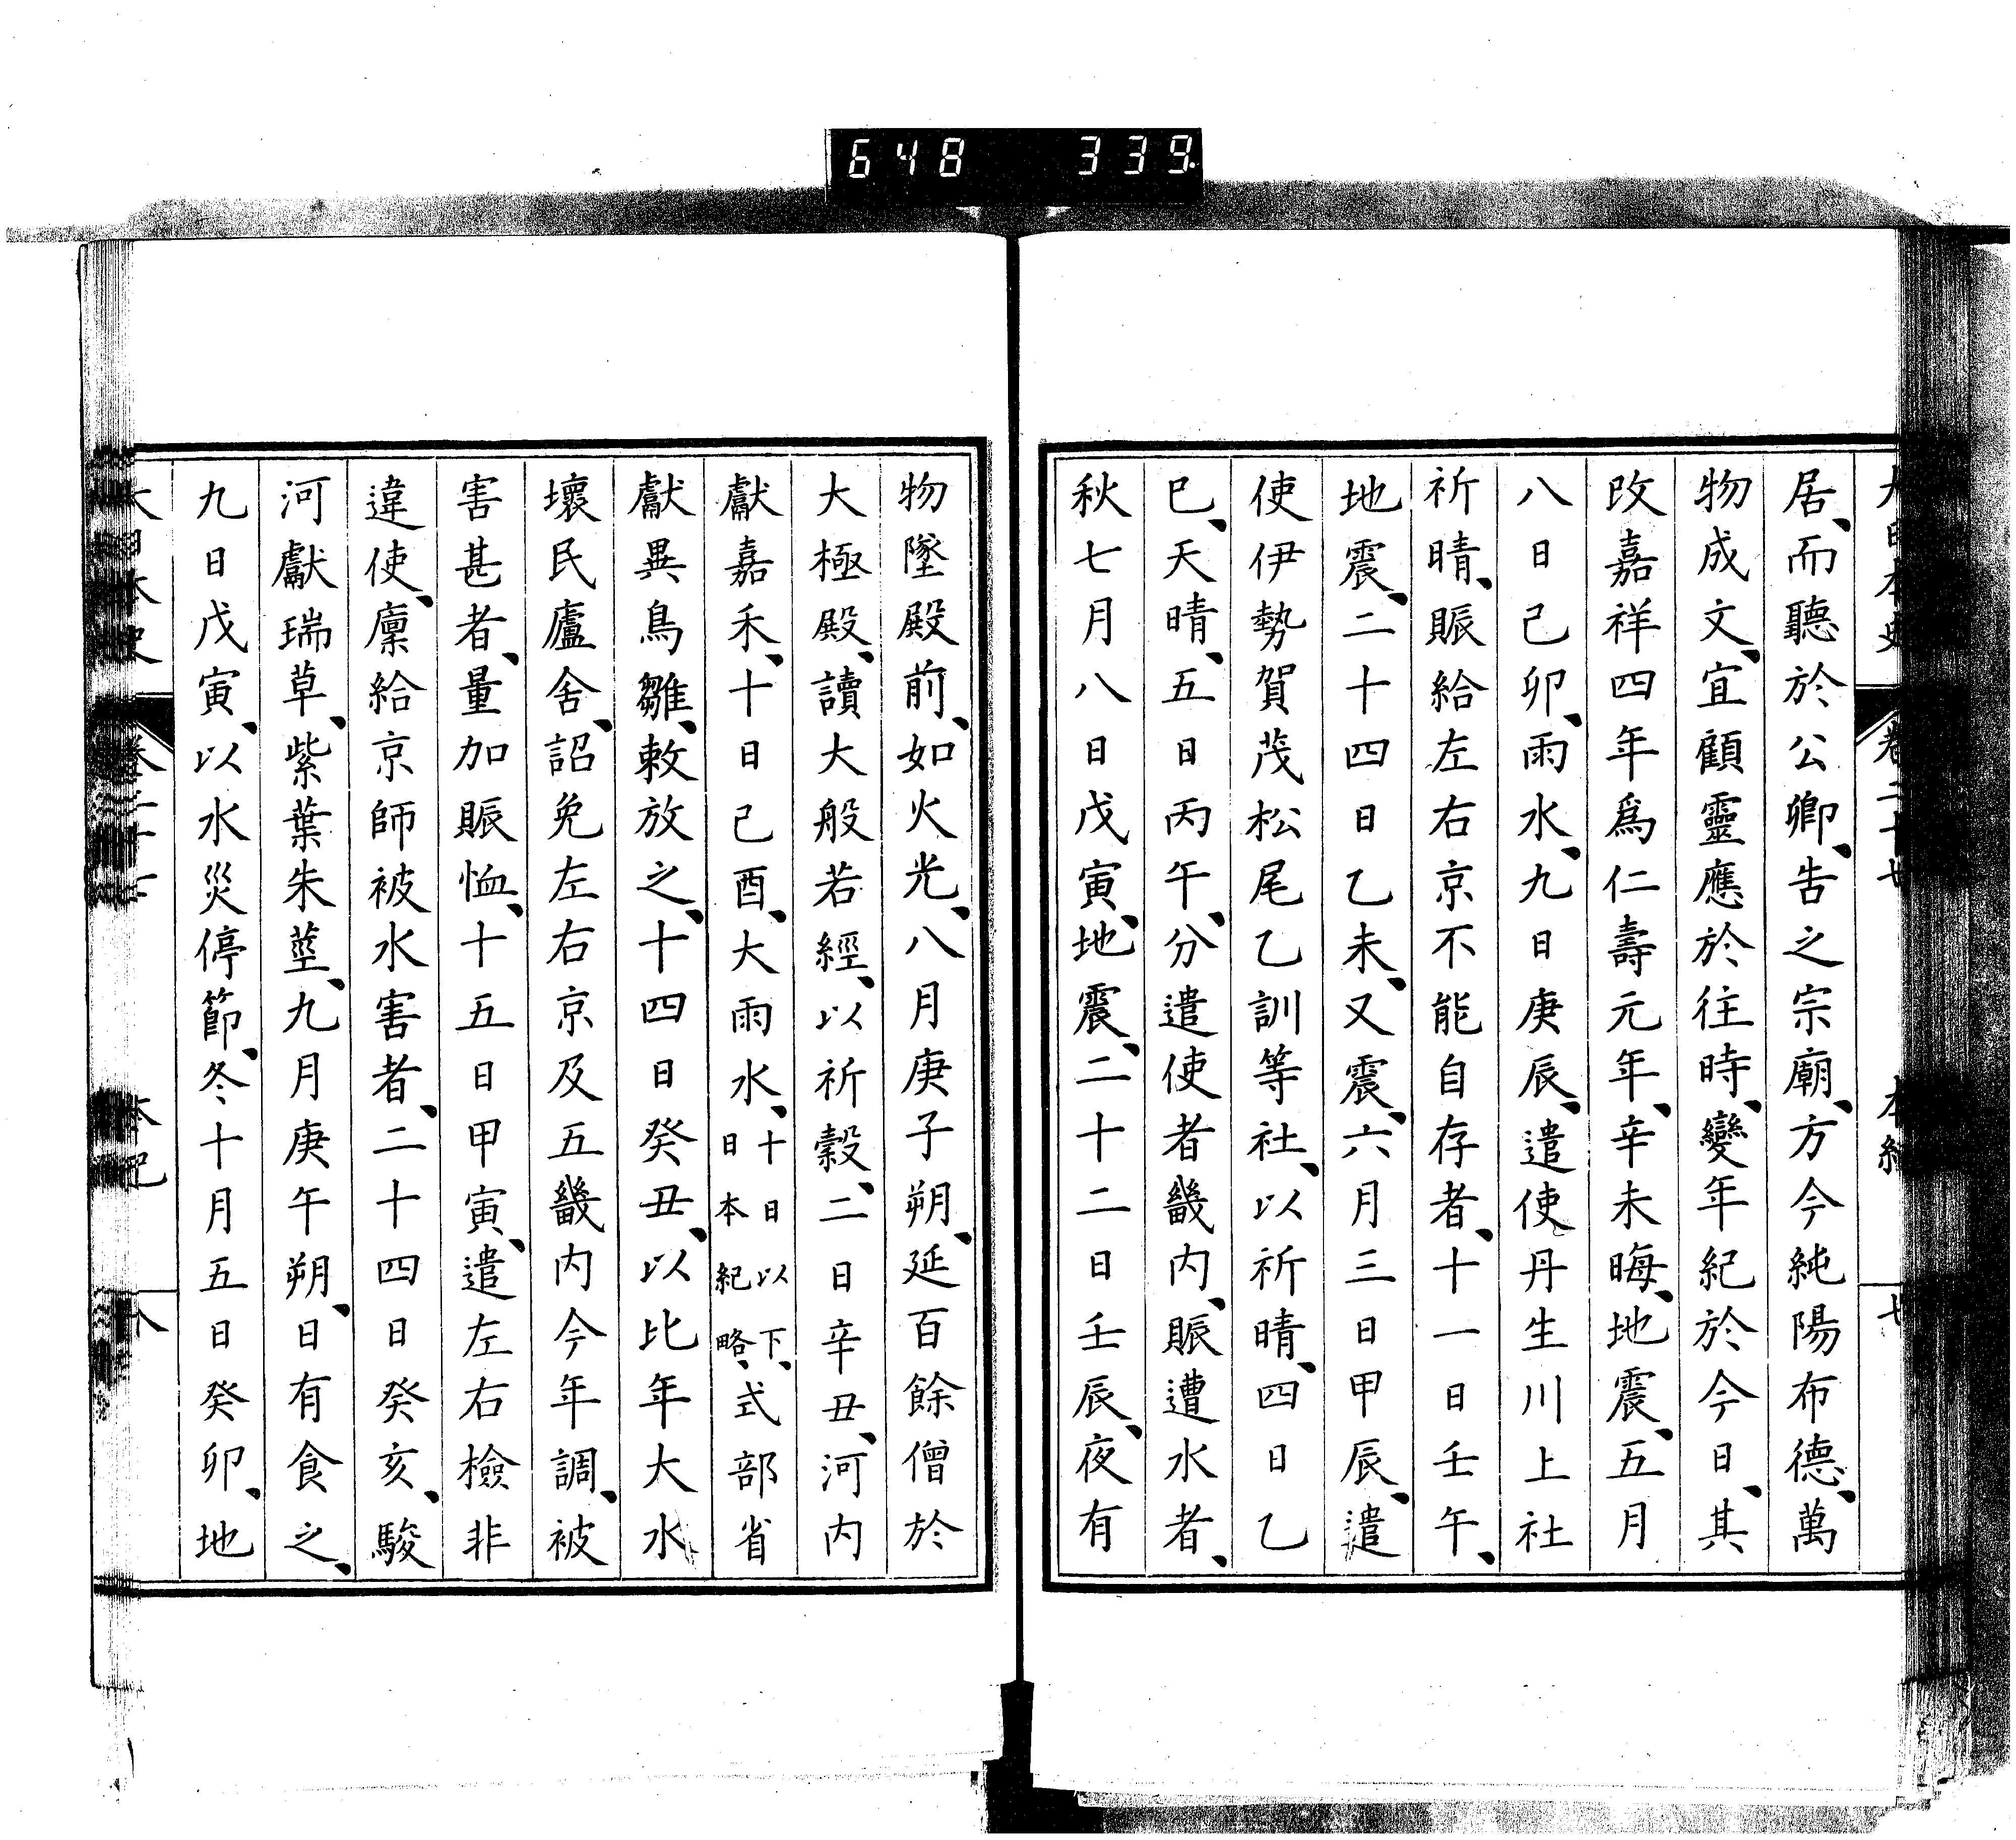 648 339
大日本史 卷二十七 本紀 七
居、而聽於公卿、告之宗廟、方今純陽布德、萬
物成文、宜顧靈應於往時、變年紀於今日、其
改嘉祥四年爲仁壽元年、辛未晦、地震、五月
八日己卯、雨水、九日庚辰、遣使丹生川上社
祈晴、賑給左右京不能自存者、十一日壬午、
地震、二十四日乙未、又震、六月三日甲辰、遣
使伊勢賀茂松尾乙訓等社、以祈晴、四日乙
巳、天晴、五日丙午、分遣使者畿内、賑遭水者、
秋七月八日戊寅、地震、二十二日壬辰、夜有
物墜殿前、如火光、八月庚子朔、延百餘僧於
大極殿、讀大般若經、以祈穀、二日辛丑、河内
獻嘉禾、十日己酉、大雨水、十日以下、日本紀略、式部省
獻異鳥雛、敕放之、十四日癸丑、以比年大水
壞民廬舍、詔免左右京及五畿内今年調、被
害甚者、量加賑恤、十五日甲寅、遣左右檢非
違使、廩給京師被水害者、二十四日癸亥、駿
河獻瑞草、紫葉朱莖、九月庚午朔、日有食之、
九日戊寅、以水災停節、冬十月五日癸卯、地
大日本史 卷二十七 本紀 八